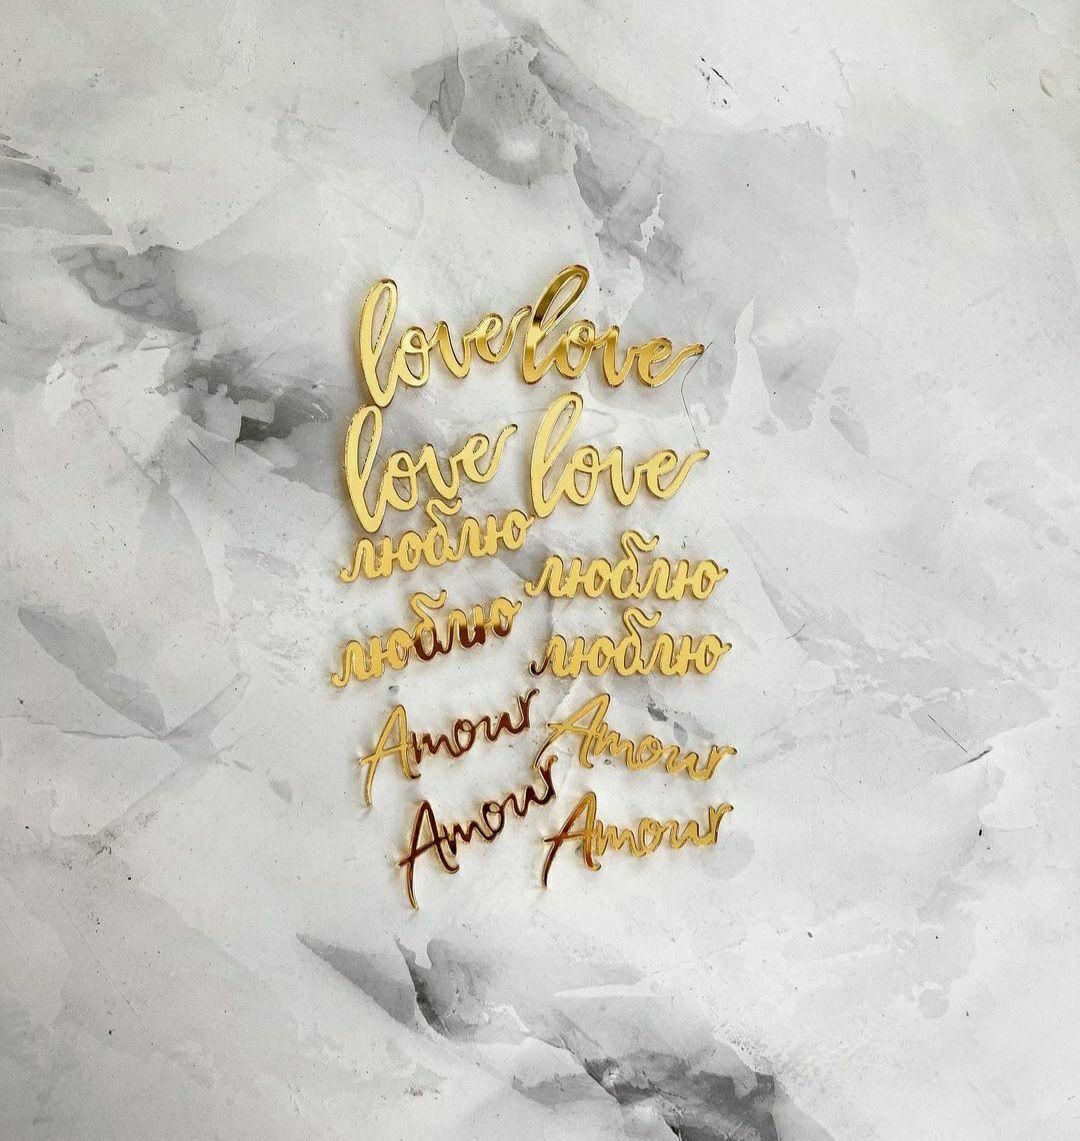 love love
love love
люблю люблю
люблю люблю
Amour Amour
Amour Amour